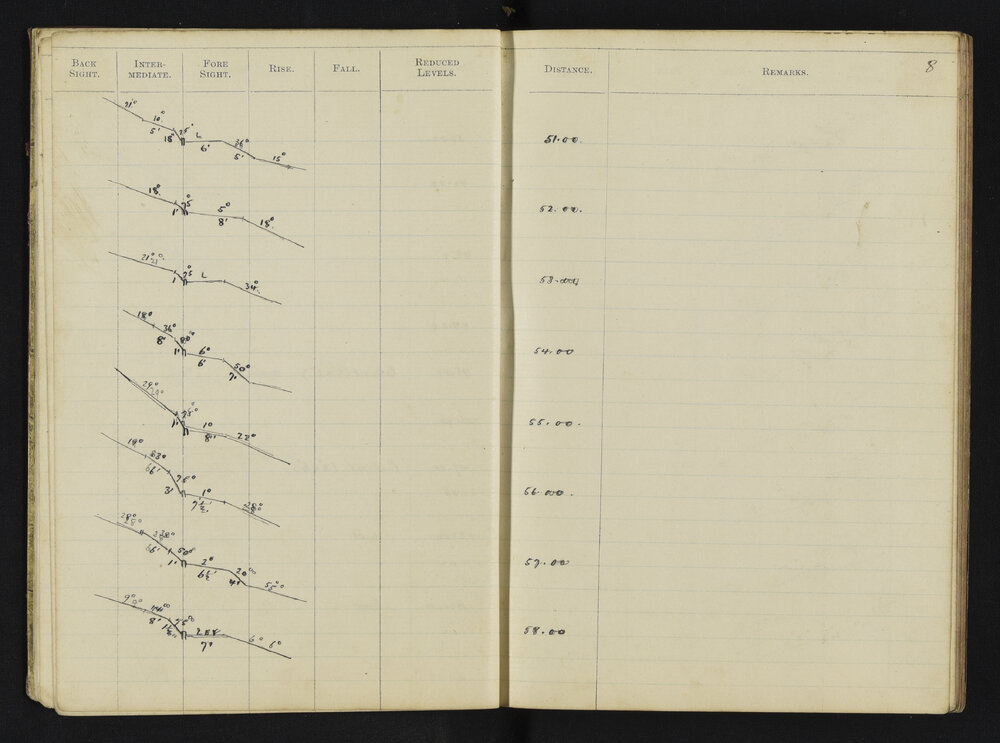 BACK SIGHT. INTER-MEDIATE. FORE SIGHT. RISE. FALL. REDUCED LEVELS. DISTANCE. REMARKS. 8
10° 75°
5' 18' L 36° 15°
6' 5'
51.00.
18° 75° 5° 18°
1' 8'
52.00.
21° 75 L 34°
1
53.00
18° 36° 80° 6° 50°
8' 1' 6' 7'
54.00
29° 75° 10 22°
1' 8"
55.00.
19° 63° 75° 1°
66' 3' 7½'
56.00.
28° 50° 2° 20° 55°
66' 1' 6½' 4'
57.00
9° 75° 6° 6°
8' 7'
58.00